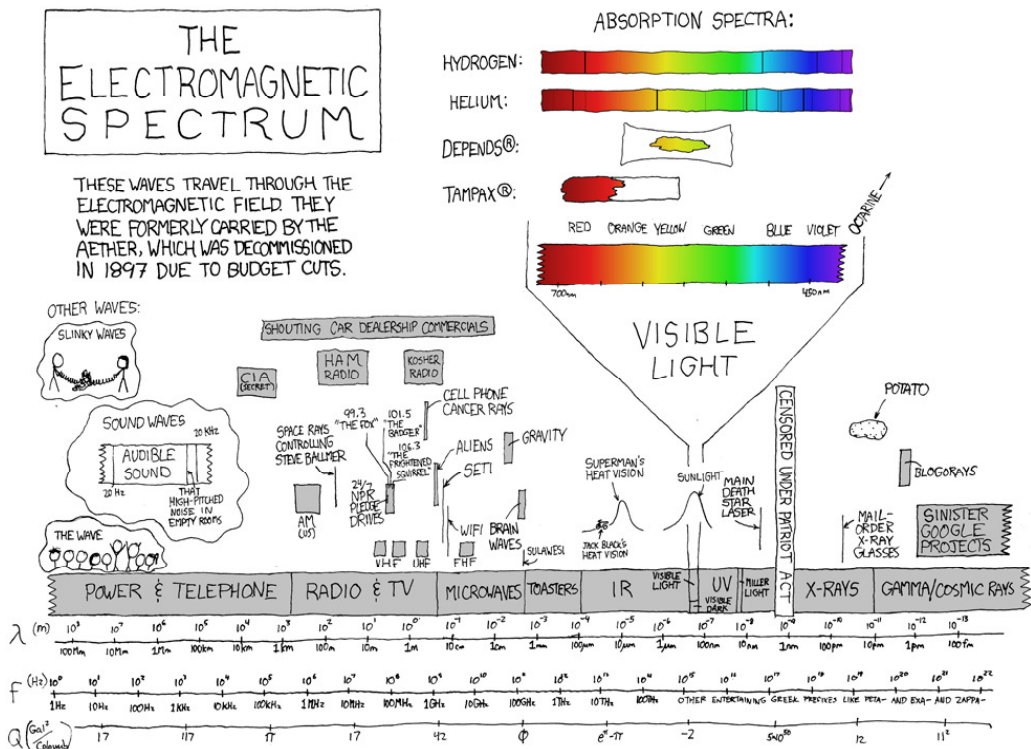 THE
ELECTROMAGNETIC
SPECTRUM
THESE WAVES TRAVEL THROUGH THE
ELECTROMAGNETIC FIELD. THEY
WERE FORMERLY CARRIED BY THE
AETHER, WHICH WAS DECOMMISSIONED
IN 1897 DUE TO BUDGET CUTS.
ABSORPTION SPECTRA:
HYDROGEN:
HELIUM:
DEPENDS®:
TAMPAX®:
RED ORANGE YELLOW GREEN BLUE VIOLET OCTARINE
700nm 450nm
VISIBLE
LIGHT
OTHER WAVES:
SLINKY WAVES
SOUND WAVES
20 KHz
AUDIBLE
SOUND
20 Hz
THAT
HIGH-PITCHED
NOISE IN
EMPTY ROOMS
THE WAVE
SHOUTING CAR DEALERSHIP COMMERCIALS
CIA
(SECRET)
HAM
RADIO
KOSHER
RADIO
SPACE RAYS
CONTROLLING
STEVE BALLMER
99.3
"THE FOX"
101.5
"THE
BADGER"
106.3
"THE
FRIGHTENED
SQUIRREL"
CELL PHONE
CANCER RAYS
ALIENS
SETI
GRAVITY
AM
(US)
24/7
NPR
PLEDGE
DRIVES
WIFI
BRAIN
WAVES
VHF
UHF
FHF
SULAWESI
SUPERMAN'S
HEAT VISION
JACK BLACK'S
HEAT VISION
SUNLIGHT
MAIN
DEATH
STAR
LASER
CENSORED UNDER PATRIOT ACT
POTATO
BLOGORAYS
MAIL-
ORDER
X-RAY
GLASSES
SINISTER
GOOGLE
PROJECTS
POWER & TELEPHONE
RADIO & TV
MICROWAVES
TOASTERS
IR
VISIBLE
LIGHT
VISIBLE
DARK
UV
MILLER
LIGHT
X-RAYS
GAMMA/COSMIC RAYS
λ (m) 10⁷ 10⁶ 10⁵ 10⁴ 10³ 10² 10¹ 1 10⁻¹ 10⁻² 10⁻³ 10⁻⁴ 10⁻⁵ 10⁻⁶ 10⁻⁷ 10⁻⁸ 10⁻⁹ 10⁻¹⁰ 10⁻¹¹ 10⁻¹² 10⁻¹³
100Mm 10Mm 1Mm 100km 10km 1km 100m 10m 1m 10cm 1cm 1mm 100μm 10μm 1μm 100nm 10nm 1nm 100pm 10pm 1pm 100fm
f (Hz)
1Hz 10Hz 100Hz 1KHz 10KHz 100KHz 1MHz 10MHz 100MHz 1GHz 10GHz 100GHz 1THz 10THz 100THz OTHER ENTERTAINING GREEK PREFIXES LIKE PETA- AND EXA- AND ZAPPA-
Q (Gal²/Coloumb) 17 117 π 17 42 φ e^π-π -2 12 11²